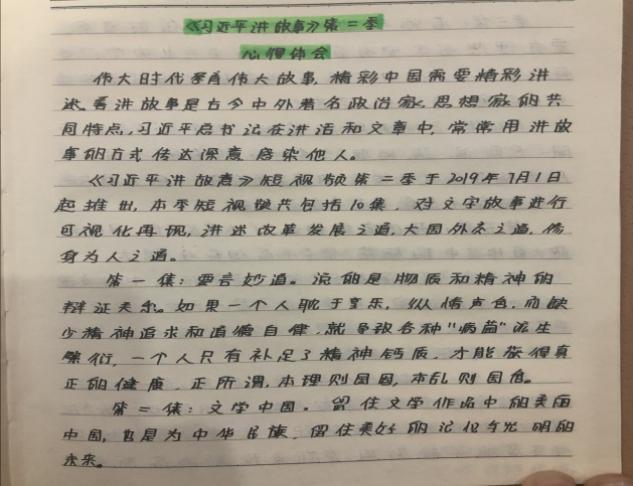 《习近平讲故事》第二季
心得体会
伟大时代孕育伟大故事，精彩中国需要精彩讲
述。善讲故事是古今中外著名政治家、思想家的共
同特点，习近平总书记在讲话和文章中，常常用讲故
事的方式传达深意，感染他人。
《习近平讲故事》短视频第二季于2019年7月1日
起推出，本季短视频共包括10集，对文字故事进行
可视化再现，讲述改革发展之道，大国外交之道，修
身为人之道。
第一集：要言妙道。说的是物质和精神的
辩证关系。如果一个人耽于享乐，纵情声色，而缺
少精神追求和道德自律，就导致各种“病菌”派生
繁衍，一个人只有补足了精神钙质，才能获得真
正的健康。正所谓，本理则国固，本乱则国危。
第二集：文学中国。留住文学作品中的美丽
中国，也是为中华民族，留住美好的记忆与光明的
未来。